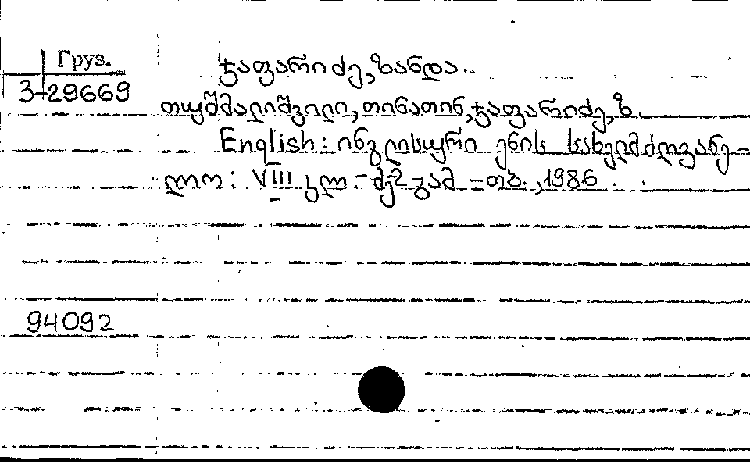 Груз.
3-29669
ჯაფარიძე, ზანდა.
თუშმალიშვილი, თინათინ, ჯაფარიძე, ზ.
English: ინგლისური ენის სახელმძღვანე-
ლო: VIII კლ. - მე-2 გამ. - თბ., 1986.
94092